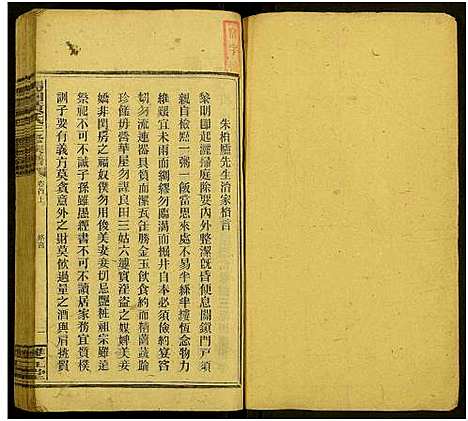 朱柏廬先生治家格言
黎明即起灑掃庭除要內外整潔既昏便息關鎖門戶須
親自檢點一粥一飯當思來處不易半絲半縷恆念物力
維艱宜未雨而綢繆勿臨渴而掘井自奉必須儉約宴客
切勿流連器具質而潔瓦缶勝金玉飲食約而精園蔬踰
珍饈毋營華屋勿謀良田三姑六婆實淫盜之媒婢美妾
嬌非閨房之福奴僕勿用俊美妻妾切忌艷粧祖宗雖遠
祭祀不可不誠子孫雖愚經書不可不讀居家務宜質樸
訓子要有義方莫貪意外之財莫飲過量之酒與肩挑貿
卷首上